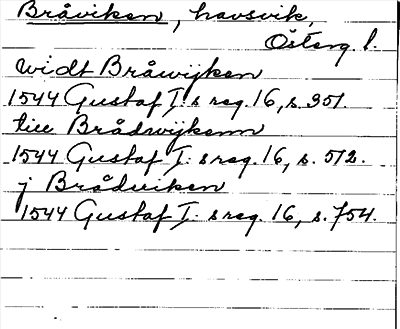 Bråviken, havsvik,
Österg. l.
widt Bråwijken
1544 Gustaf I:s reg. 16, s. 351.
till Brådwijkenn
1544 Gustaf I:s reg. 16, s. 512.
j Brådviken
1544 Gustaf I:s reg. 16, s. 754.